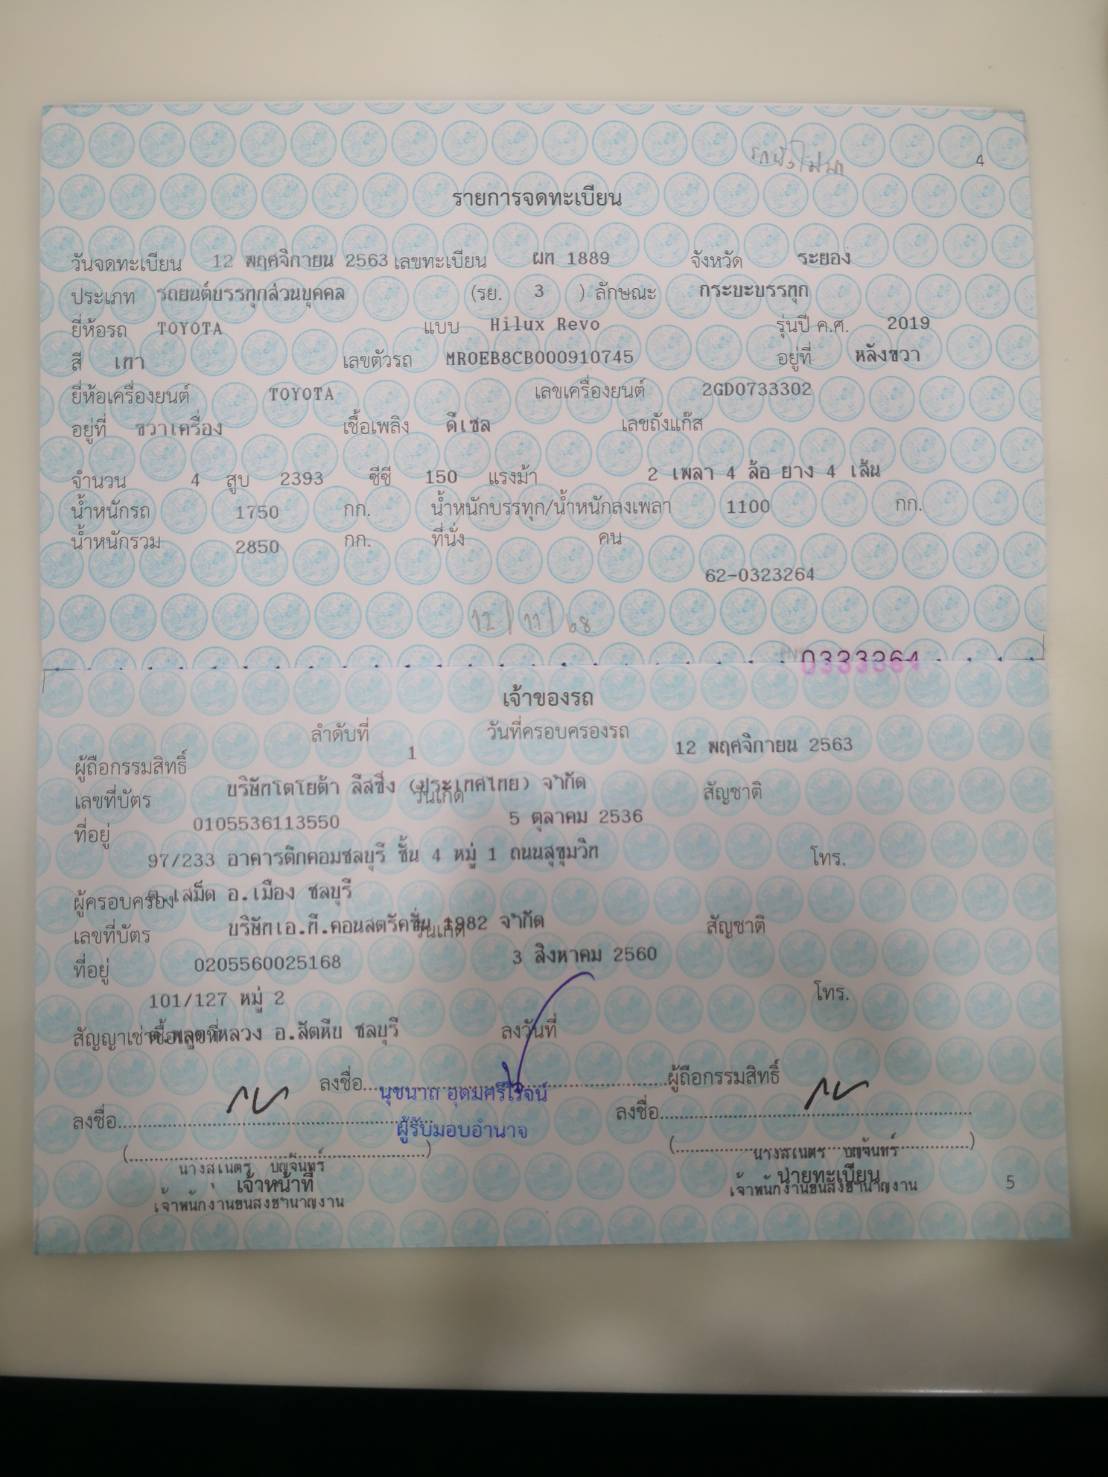 4
รายการจดทะเบียน
วันจดทะเบียน 12 พฤศจิกายน 2563 เลขทะเบียน ผท 1889 จังหวัด ระยอง
ประเภท รถยนต์บรรทุกส่วนบุคคล (รย. 3 ) ลักษณะ กระบะบรรทุก
ยี่ห้อรถ TOYOTA แบบ Hilux Revo รุ่นปี ค.ศ. 2019
สี เทา เลขตัวรถ MR0EB8CB000910745 อยู่ที่ หลังขวา
ยี่ห้อเครื่องยนต์ TOYOTA เลขเครื่องยนต์ 2GD0733302
อยู่ที่ ขวาเครื่อง เชื้อเพลิง ดีเซล เลขถังแก๊ส
จำนวน 4 สูบ 2393 ซีซี 150 แรงม้า 2 เพลา 4 ล้อ ยาง 4 เส้น
น้ำหนักรถ 1750 กก. น้ำหนักบรรทุก/น้ำหนักลงเพลา 1100 กก.
น้ำหนักรวม 2850 กก. ที่นั่ง คน
62-0323264
12/11/68
0333364
เจ้าของรถ
ลำดับที่ 1 วันที่ครอบครองรถ 12 พฤศจิกายน 2563
ผู้ถือกรรมสิทธิ์ บริษัทโตโยต้า ลีสซิ่ง (ประเทศไทย) จำกัด
เลขที่บัตร 0105536113550 วันเกิด 5 ตุลาคม 2536 สัญชาติ
ที่อยู่ 97/233 อาคารดิกคอมชลบุรี ชั้น 4 หมู่ 1 ถนนสุขุมวิท โทร.
ต.เสม็ด อ.เมือง ชลบุรี
ผู้ครอบครอง บริษัทเอ.ที.คอนสตรัคชั่น 1982 จำกัด
เลขที่บัตร 0205560025168 วันเกิด 3 สิงหาคม 2560 สัญชาติ
ที่อยู่ 101/127 หมู่ 2 โทร.
ต.พลูตาหลวง อ.สัตหีบ ชลบุรี
สัญญาเช่าซื้อเลขที่ ลงวันที่
ลงชื่อ ผู้ถือกรรมสิทธิ์
นุชนาถ อุดมศรีไรจน์
ผู้รับมอบอำนาจ
ลงชื่อ ลงชื่อ
(นางสุเนตร บุญจันทร์) (นางสุเนตร บุญจันทร์)
เจ้าหน้าที่ นายทะเบียน
เจ้าพนักงานขนส่งชำนาญงาน เจ้าพนักงานขนส่งชำนาญงาน
5